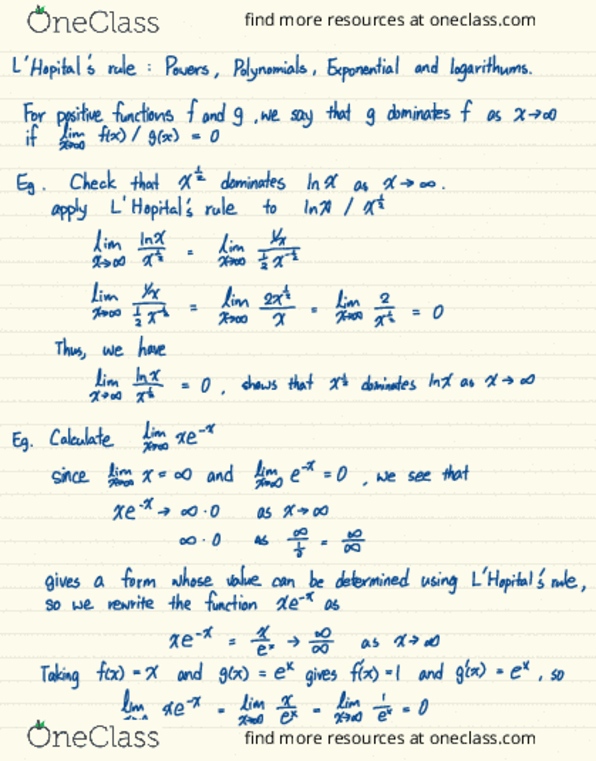 OneClass find more resources at oneclass.com
L'Hopital's rule : Powers, Polynomials, Exponential and logarithums.
For positive functions f and g, we say that g dominates f as x→∞
if lim x→∞ f(x) / g(x) = 0
Eg. Check that x^½ dominates ln x as x→∞.
apply L'Hopital's rule to lnx / x^½
lim x→∞ lnx / x^½ = lim x→∞ (1/x) / (½ x^-½)
lim x→∞ (1/x) / (½ x^-½) = lim x→∞ 2x^½ / x = lim x→∞ 2 / x^½ = 0
Thus, we have
lim x→∞ lnx / x^½ = 0, shows that x^½ dominates lnx as x→∞
Eg. Calculate lim x→∞ xe^-x
since lim x→∞ x = ∞ and lim x→∞ e^-x = 0, we see that
xe^-x → ∞·0 as x→∞
∞·0 as = ∞/∞
gives a form whose value can be determined using L'Hopital's rule,
so we rewrite the function xe^-x as
xe^-x = x/e^x → ∞/∞ as x→∞
Taking f(x) = x and g(x) = e^x gives f'(x) = 1 and g'(x) = e^x, so
lim xe^-x = lim x→∞ x/e^x = lim x→∞ 1/e^x = 0
OneClass find more resources at oneclass.com